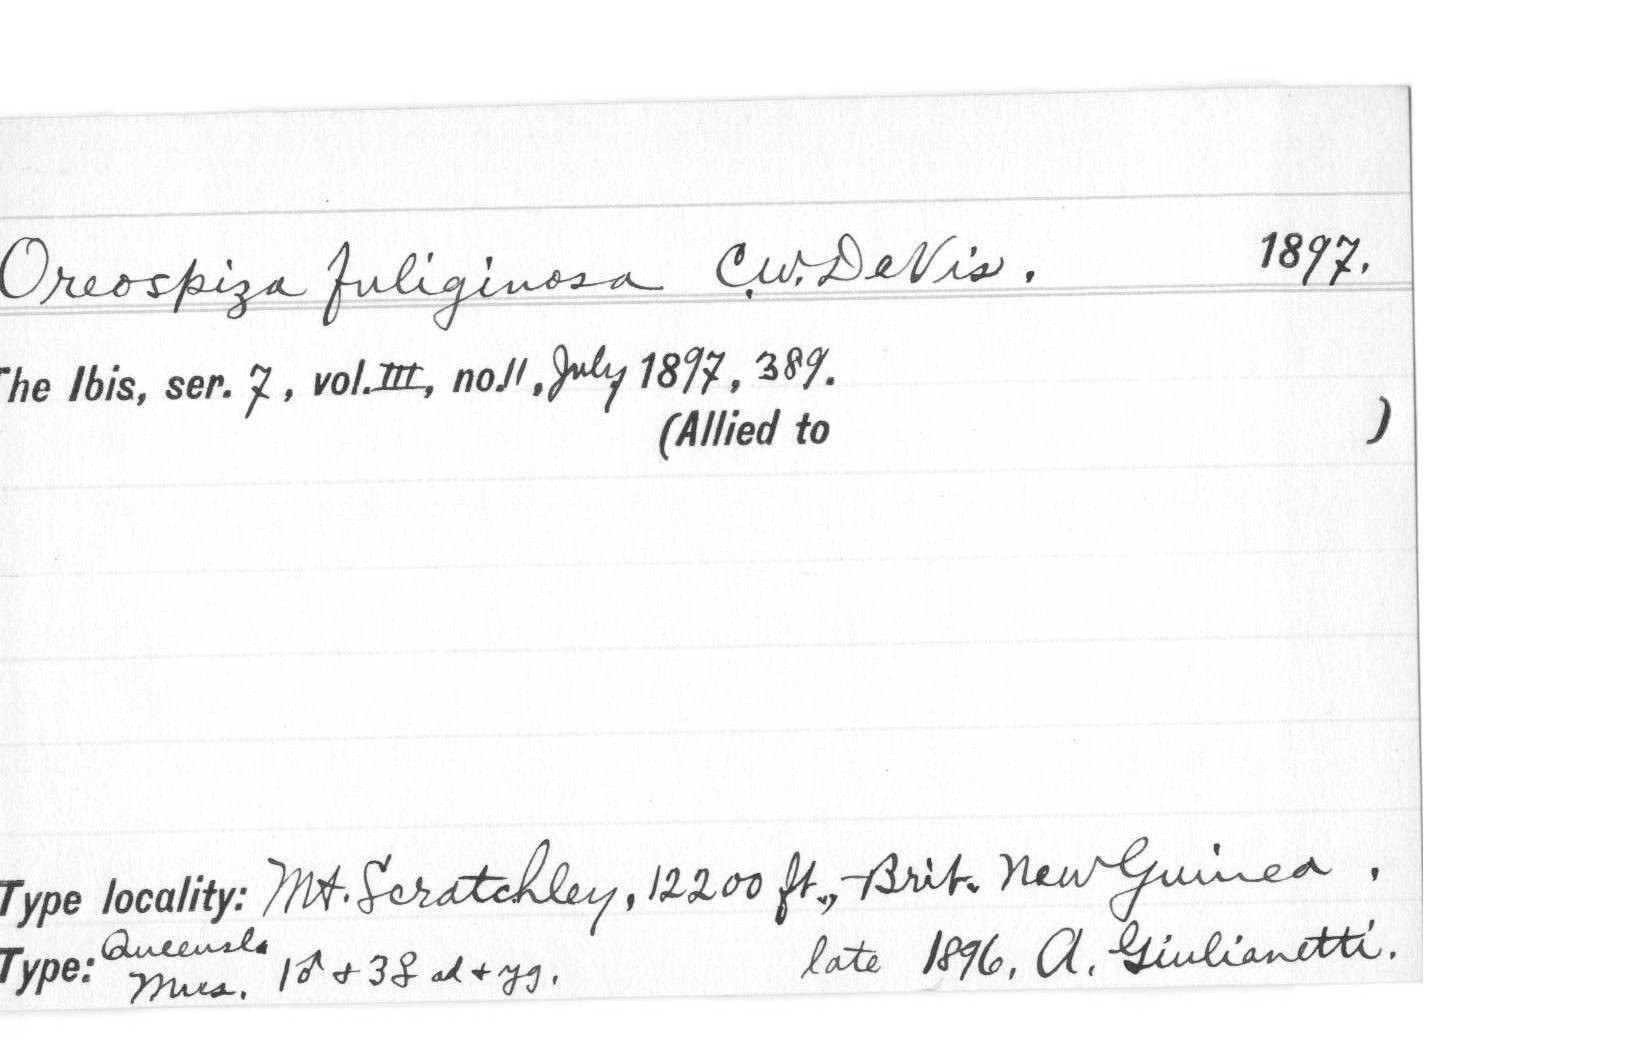 Oreospiza fuliginosa C.W. DeVis. 1897.
The Ibis, ser. 7, vol. III, no. 11, July 1897, 389.
(Allied to )
Type locality: Mt. Scratchley, 12200 ft., Brit. New Guinea.
Type: Queensl. Mus. 1♂ + 3♀ ad + yg. late 1896, A. Giulianetti.